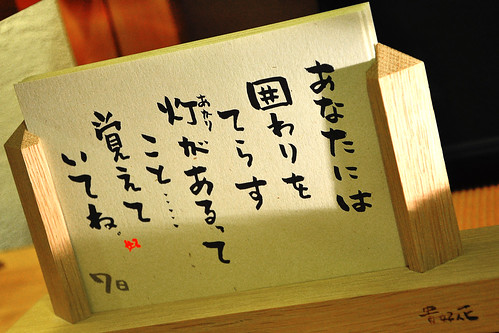 あなたには
囲わりを
てらす
灯があるって
あかり
こと……
覚えて
いてね。
7日